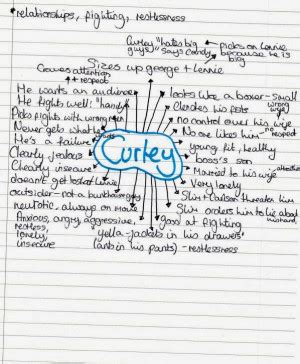 *relationships, fighting, restlessness
Curley "hates big guys" says candy
Picks on Lennie because he is big
Sizes up george + Lennie
Craves attention + respect
He wants an audience
He fights well: "handy"
Picks fights with wrong men
Never gets what
He's a failure
Clearly jealous
Clearly insecure
doesn't get
outsider - not a bunkhouse guy
neurotic, always on move
Anxious, angry, aggressive,
restless,
lonely,
insecure
Curley
looks like a boxer - small
Clenches his fists
wrong wife
no control over his wife
No one likes him - no respect
young fit, healthy
boss's son
Married to his wife
Very lonely
Slim + Carlson threaten him
Slim orders him to lie about his hand
good at fighting
yella-jackets in his drawers'
(ants in his pants) - restlessness